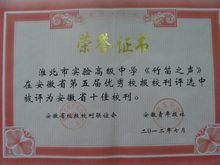 荣誉证书
淮北市实验高级中学《竹笛之声》
在安徽省第五届优秀校报校刊评选中
被评为安徽省十佳校刊。
安徽省校报校刊联谊会 安徽青年报社
二〇一二年七月